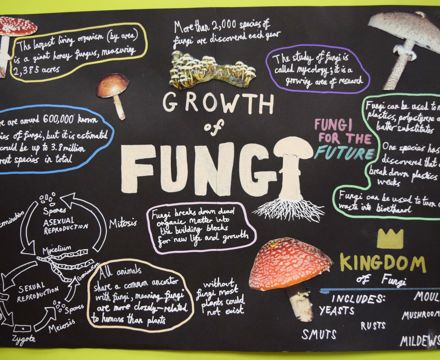 The largest living organism (by area)
is a giant honey fungus, measuring
2,385 acres
More than 2,000 species of
fungi are discovered each year
The study of fungi is
called mycology; it is a
growing area of research
GROWTH
of
FUNGI
are around 600,000 known
of fungi, but it is estimated
could be up to 3.8 million
species in total
FUNGI
FOR THE
FUTURE
Fungi can be used to
plastics,
butter substitutes
One species has
discovered that
break down plastics
weeks
Fungi can be used to turn
waste into
Spores
ASEXUAL
REPRODUCTION
Mitosis
Mycelium
SEXUAL
REPRODUCTION
Spores
Meiosis
Zygote
Fungi breaks down dead
organic matter into
the building blocks
for new life and growth
All animals
share a common ancestor
with fungi, meaning fungi
are more closely-related
to humans than plants
without
fungi most
plants could
not exist
KINGDOM
of Fungi
INCLUDES:
YEASTS
RUSTS
SMUTS
MOUL
MUSHROOM
MILDEWS